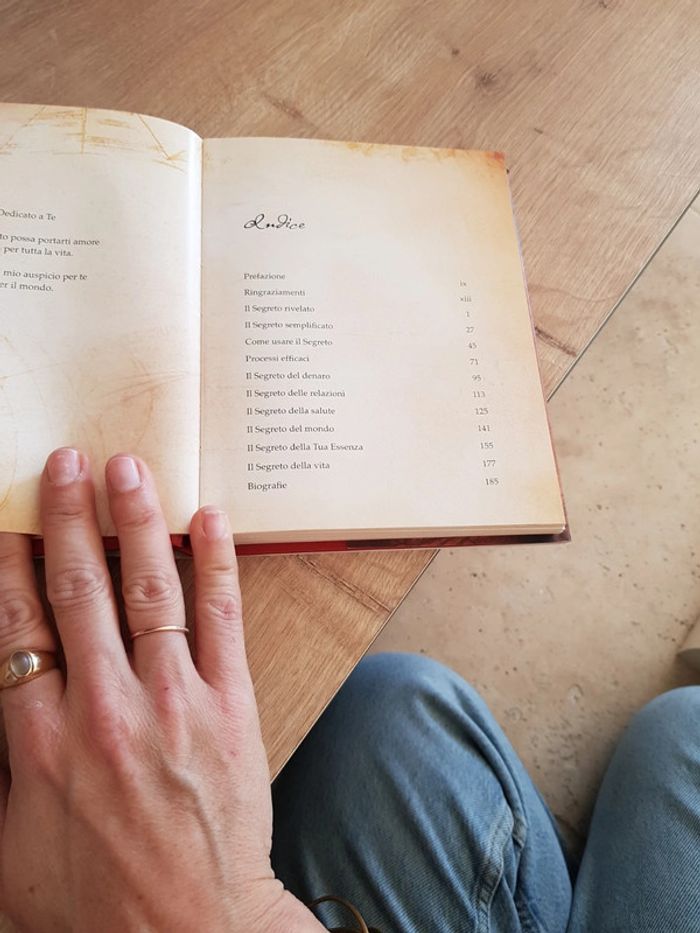 Dedicato a Te
to possa portarti amore
per tutta la vita.
mio auspicio per te
er il mondo.
Indice
Prefazione ix
Ringraziamenti xiii
Il Segreto rivelato 1
Il Segreto semplificato 27
Come usare il Segreto 45
Processi efficaci 71
Il Segreto del denaro 95
Il Segreto delle relazioni 113
Il Segreto della salute 125
Il Segreto del mondo 141
Il Segreto della Tua Essenza 155
Il Segreto della vita 177
Biografie 185